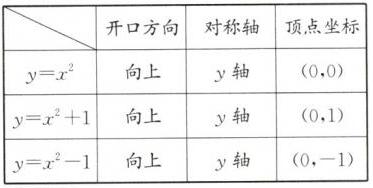 开口方向 对称轴 顶点坐标
y=x² 向上 y轴 (0,0)
y=x²+1 向上 y轴 (0,1)
y=x²-1 向上 y轴 (0,-1)